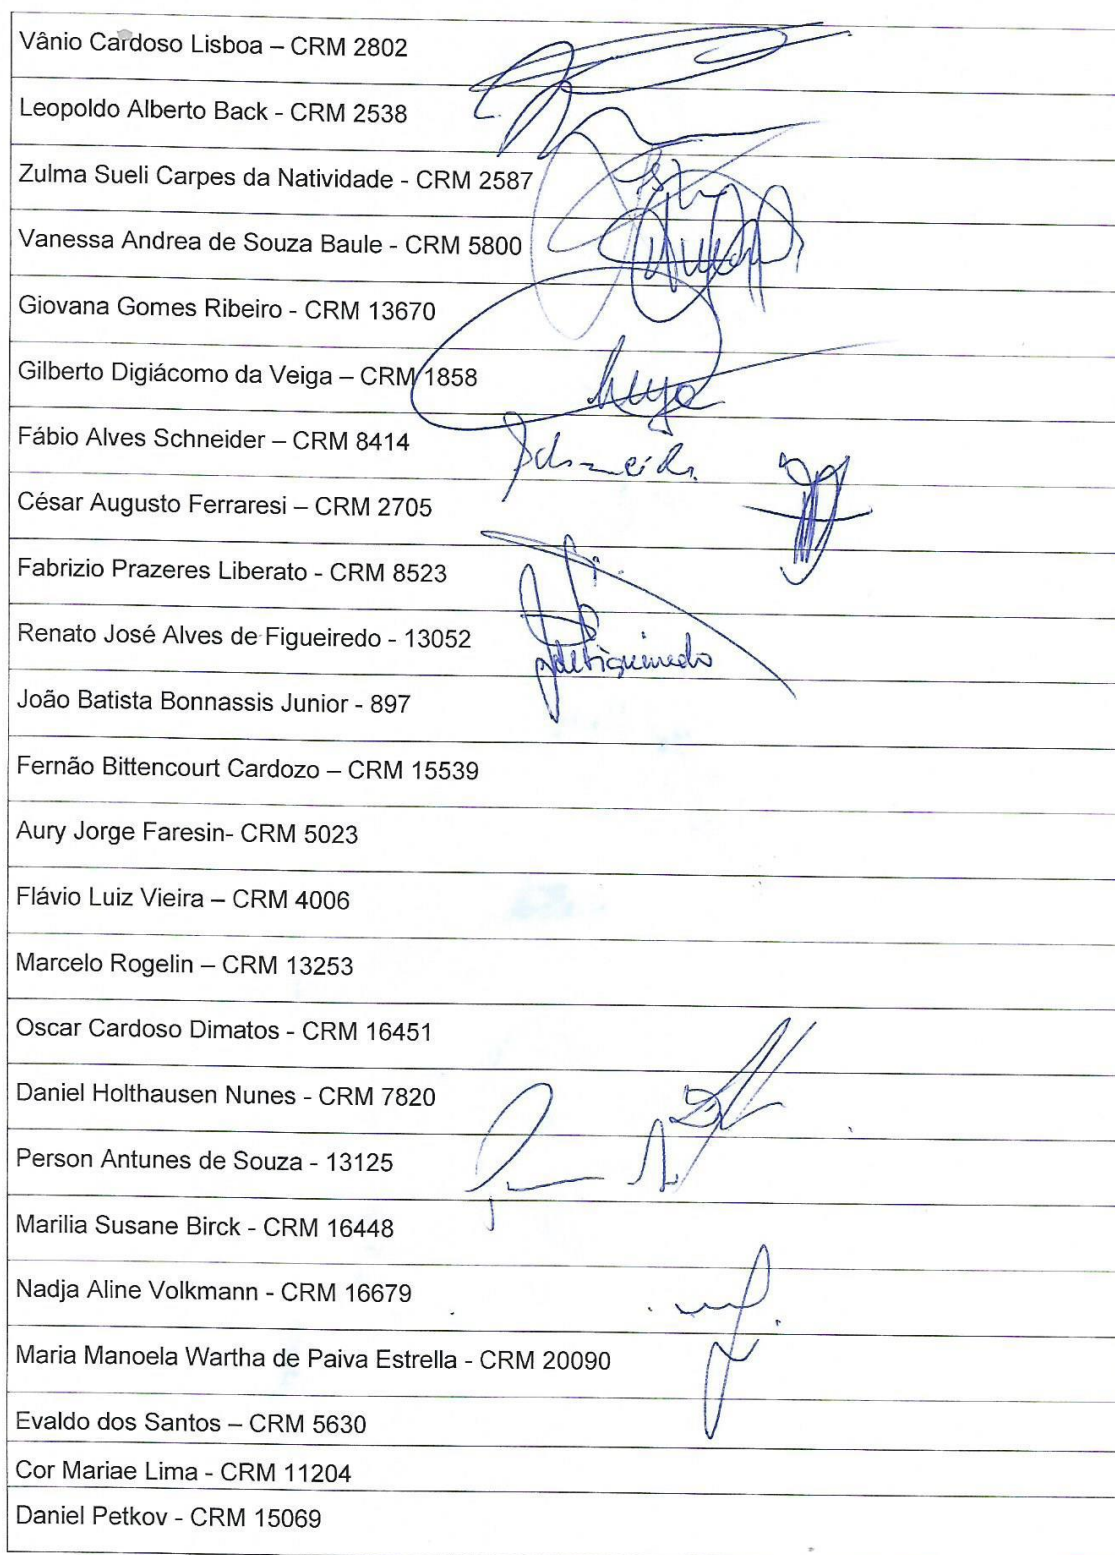 Vânio Cardoso Lisboa – CRM 2802
Leopoldo Alberto Back - CRM 2538
Zulma Sueli Carpes da Natividade - CRM 2587
Vanessa Andrea de Souza Baule - CRM 5800
Giovana Gomes Ribeiro - CRM 13670
Gilberto Digiácomo da Veiga – CRM 1858
Fábio Alves Schneider – CRM 8414
Schneider
César Augusto Ferraresi – CRM 2705
Fabrizio Prazeres Liberato - CRM 8523
Renato José Alves de Figueiredo - 13052
João Batista Bonnassis Junior - 897
Fernão Bittencourt Cardozo – CRM 15539
Aury Jorge Faresin- CRM 5023
Flávio Luiz Vieira – CRM 4006
Marcelo Rogelin – CRM 13253
Oscar Cardoso Dimatos - CRM 16451
Daniel Holthausen Nunes - CRM 7820
Person Antunes de Souza - 13125
Marilia Susane Birck - CRM 16448
Nadja Aline Volkmann - CRM 16679
Maria Manoela Wartha de Paiva Estrella - CRM 20090
Evaldo dos Santos – CRM 5630
Cor Mariae Lima - CRM 11204
Daniel Petkov - CRM 15069